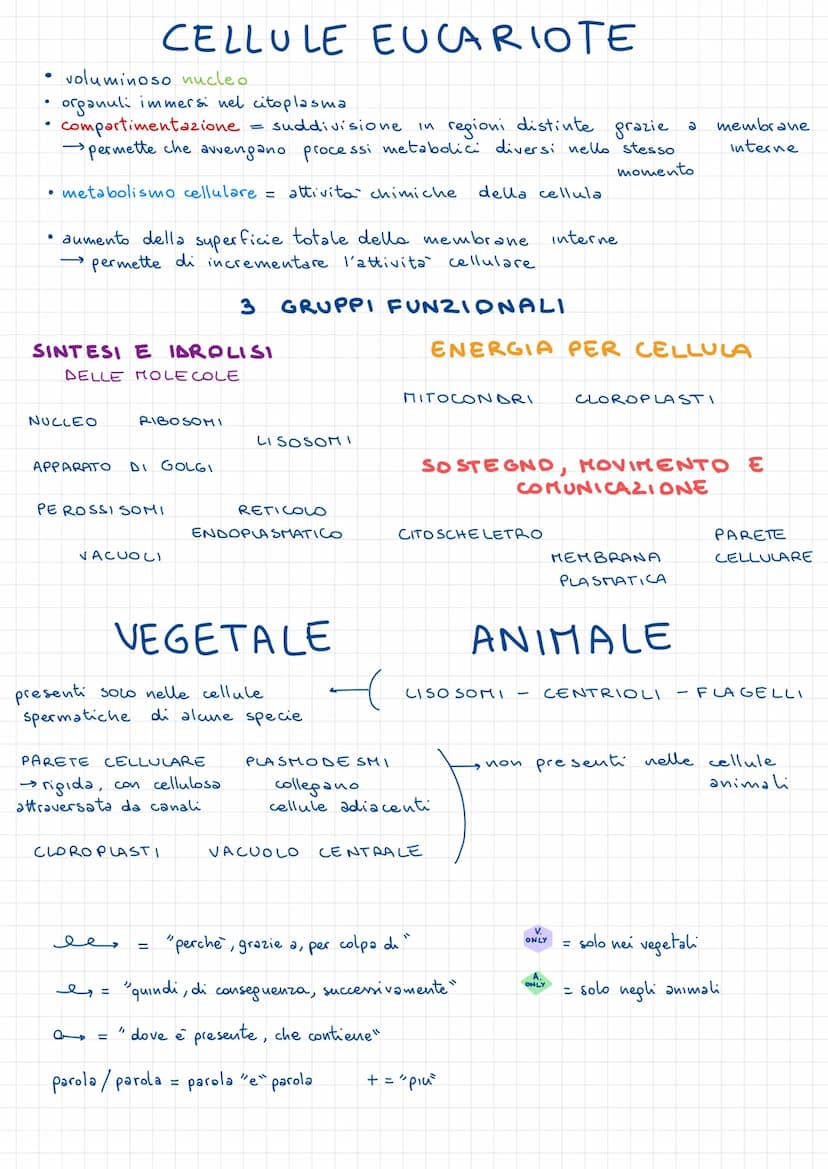 CELLULE EUCARIOTE
• voluminoso nucleo
• organuli immersi nel citoplasma
• compartimentazione = suddivisione in regioni distinte grazie a membrane interne
→ permette che avvengano processi metabolici diversi nello stesso momento
• metabolismo cellulare = attività chimiche della cellula
• aumento della superficie totale della membrane interne
→ permette di incrementare l'attività cellulare
3 GRUPPI FUNZIONALI
SINTESI E IDROLISI
DELLE MOLECOLE
NUCLEO RIBOSOMI
LISOSOMI
APPARATO DI GOLGI
PEROSSISOMI RETICOLO
ENDOPLASMATICO
VACUOLI
ENERGIA PER CELLULA
MITOCONDRI CLOROPLASTI
SOSTEGNO, MOVIMENTO E
COMUNICAZIONE
CITOSCHELETRO
MEMBRANA
PLASMATICA
PARETE
CELLULARE
VEGETALE
ANIMALE
presenti solo nelle cellule
spermatiche di alcune specie
← ( LISOSOMI - CENTRIOLI - FLAGELLI
PARETE CELLULARE
→ rigida, con cellulosa
attraversata da canali
PLASMODESMI
collegano
cellule adiacenti
CLOROPLASTI VACUOLO CENTRALE
) → non presenti nelle cellule
animali
= "perchè, grazie a, per colpa di"
= "quindi, di conseguenza, successivamente"
= "dove è presente, che contiene"
parola / parola = parola "e" parola + = "più"
V. ONLY = solo nei vegetali
A. ONLY = solo negli animali